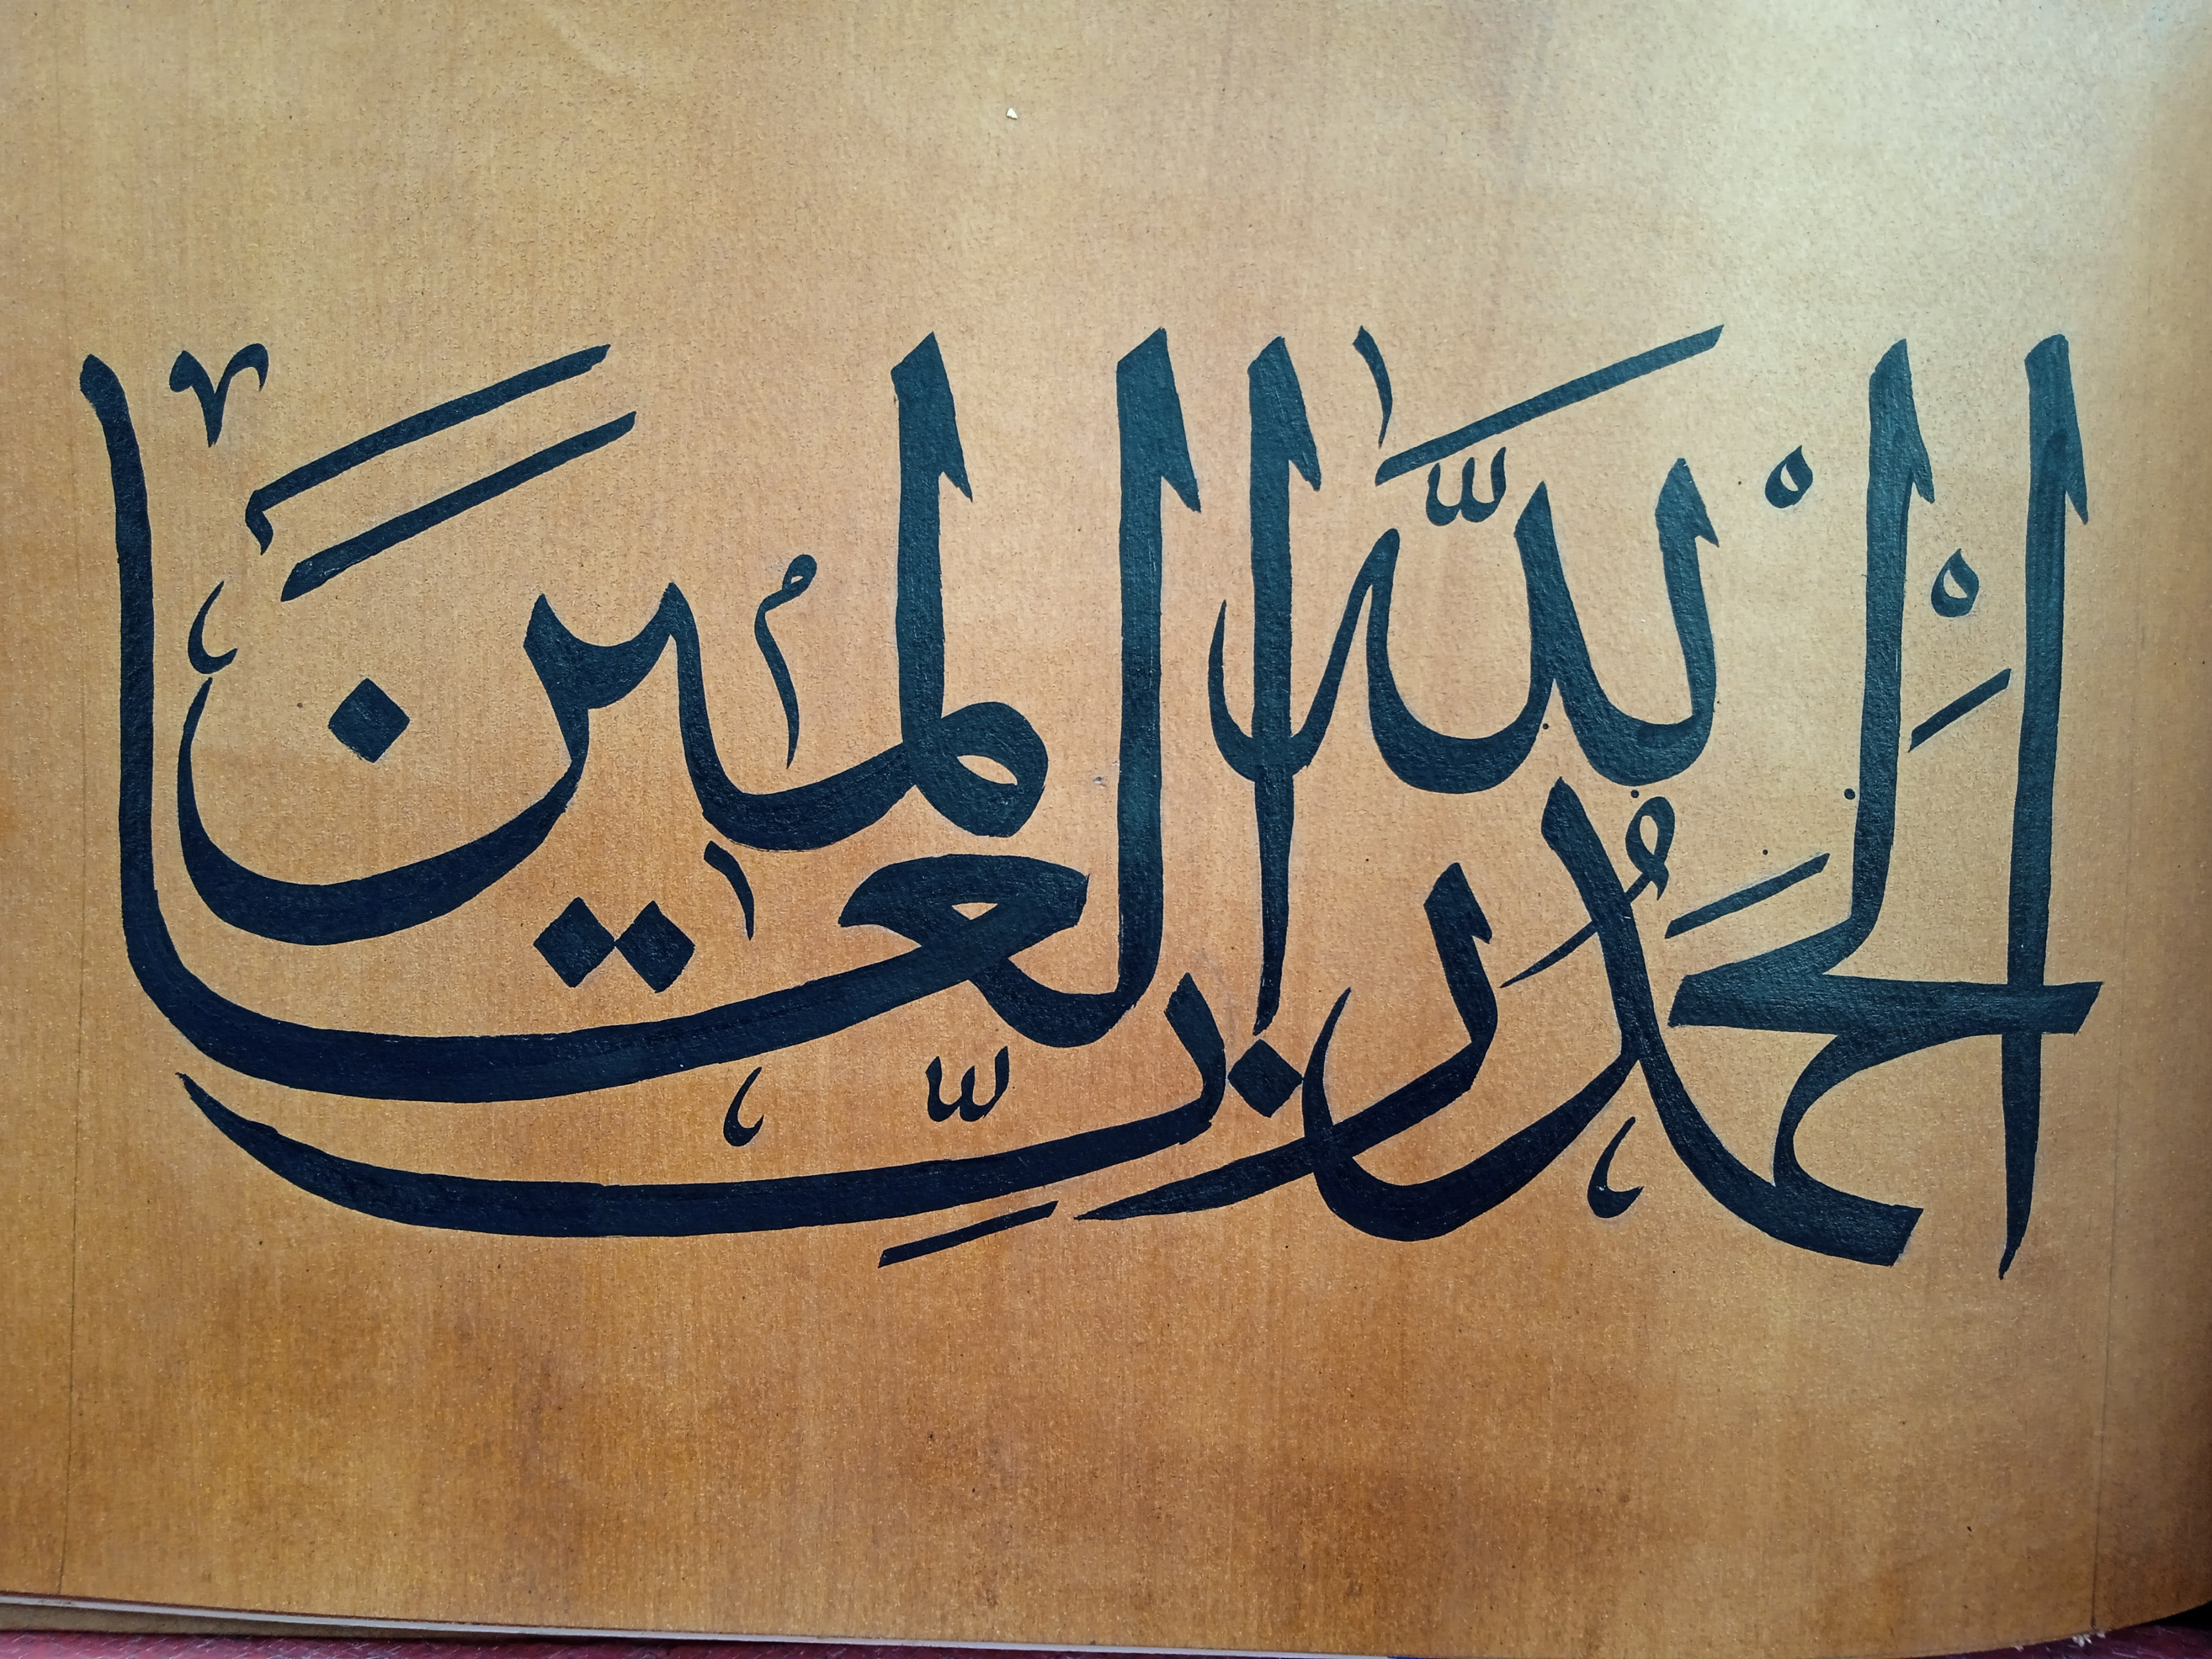 الْحَمْدُ لِلّٰهِ رَبِّ الْعَالَمِينَ